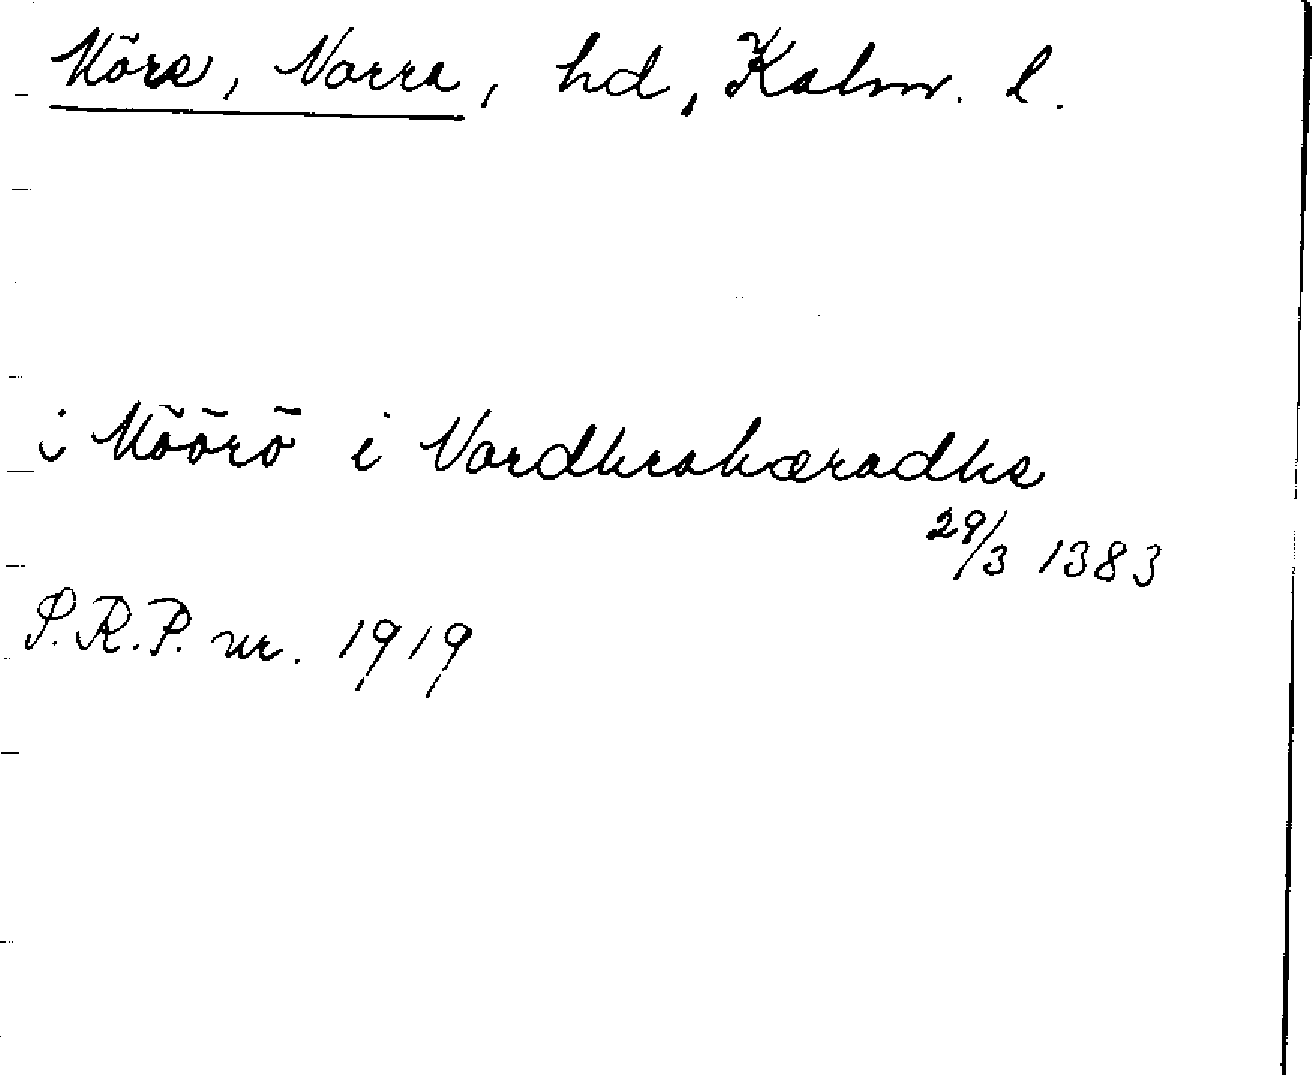 Möre, Norra, hd, Kalm. l.
i Möörö i Nordhrahæradhe
29/3 1383
S.R.P. nr. 1919